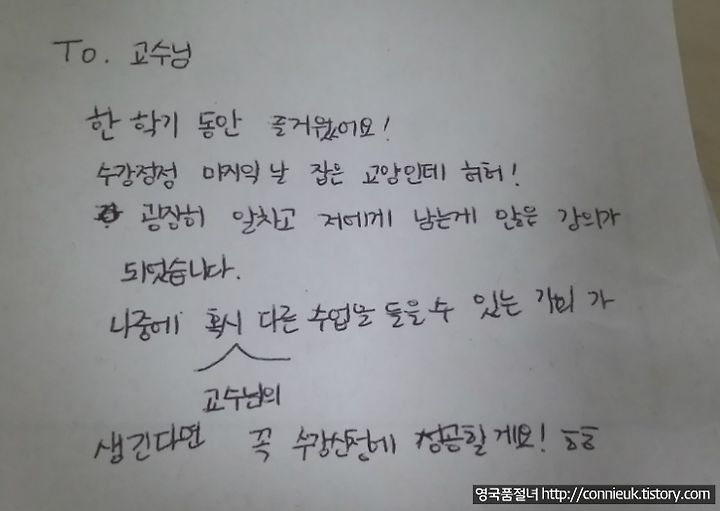 To. 교수님
한 학기 동안 즐거웠어요!
수강정정 마지막 날 잡은 교양인데 허허!
굉장히 알차고 저에게 남는게 많은 강의가
되었습니다.
나중에 혹시 다른 수업을 들을 수 있는 기회 가
교수님의
생긴다면 꼭 수강신청에 성공할게요! ㅎㅎ
영국품절녀 http://connieuk.tistory.com